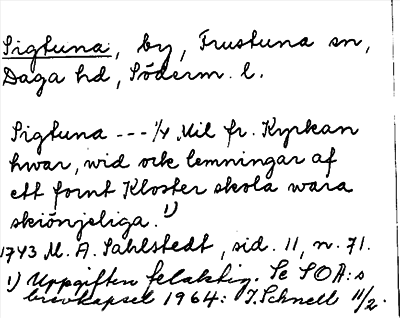 Sigtuna, by, Frustuna sn,
Daga hd, Söderm. l.
Sigtuna --- 1/4 Mil fr. Kyrkan
hwar, wid ock lemningar af
ett fornt Kloster skola wara
skiönjeliga. 1)
1743 M. A. Sahlstedt, sid. 11, n. 71.
1) Uppgiften felaktig. Se SOA:s
brevkapsel 1964: I. Schnell 11/2.